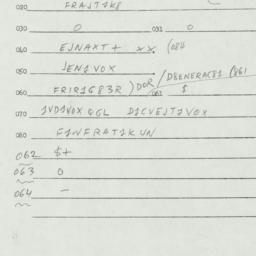 020 FRAJTIK8
030 0 031 0
040 EJNAXT+ XX. (084
050 JENIVOX
060 FRIRIG83R )DOR/D8ENERAC81 (061
061 $
070 IVDIVOX QGL DICVEJTIVOX
080 FINFRATIK UN
062 $+
063 0
064 –